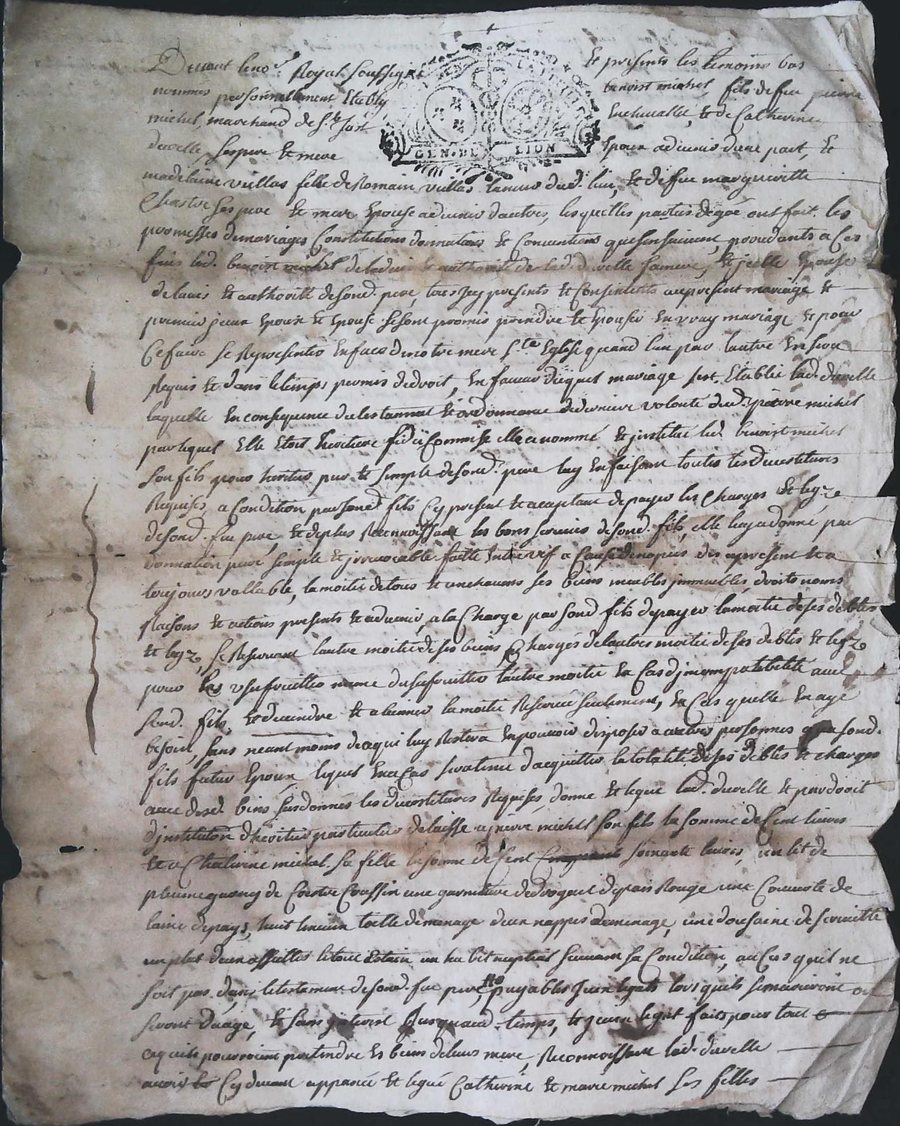 Devant le no.re Royal soussigné Et presents les temoins bas
nommes personnellement Etably benoist michel fils de feu pierre
michel, marchand de St Just Enchevallé, & de Catherine
duvelle ses pere & mere Epoux advenir d'une part, Et
GEN. DE LION
madelaine villas fille de Romain villas dud. lieu, & de feu marguerite
Chastre ses pere & mere Epouse advenir d'autre, lesquelles parties de gré ont fait les
promesses de mariages Constitutions donnations & Conventions que s'ensuivent, procedants a Ces
fins led. benoist michel de l'advis & authorité de lad. duvelle sa mere, & icelle Epouse
de l'avis & authorité de son d. pere, tous Icy presents & Consentents au present mariage &
premierement Epoux & Epouse se sont promis prendre & Epouser En vray mariage & pour
Ce faire se Representer En face de notre mere Ste Eglise quand l'un par l'autre En sera
Requis & dans le temps permis de droit, En faveur duquel mariage s'est Etablie lad. duvelle
laquelle En consequence du testament & ordonnance de derniere volonté dud. pierre michel
par lequel Elle Etoit heritiere fideicommise elle a nommé & institué led. benoist michel
son fils pour heritier pur & simple de son d. pere luy En faisant toutes les devestitures
Requises, a Condition par son d. fils Cy present & acceptant de payer les Charges & legz
de son d. feu pere, & de plus Reconnoissant les bons services de son d. fils, elle luy a donné par
donnation pure simple & irrevocable faitte Entre vif a Cause de nopces des apresent & a
toujours vallable, la moitié de tous & un chacuns ses biens meubles immeubles, droits noms
Raisons & actions presents & advenir a la Charge par son d. fils de payer la moitié de ses debtes
& legz, se Reservant l'autre moitié de ses biens Chargés de l'autre moitié de ses debtes & legz
pour usufruitter l'autre moitié En Cas d'incompatibilité avec
son d. fils, & vendre & alienner la moitié Reservée seulement, En Cas quelle En aye
besoin, sans neantmoins de ce qui luy Restera En pouvoir disposer a autres personnes qu'a son d.
fils futur Epoux, lequel En ce Cas sera tenu d'acquitter la totalité de ses debtes & charges
avec des d. biens susdonnés les devestitures Requises, donne & legue lad. duvelle & par droit
d'institution d'heritier particulier delaisse a pierre michel son fils la somme de Cent livres
& a Catherine michel sa fille la somme de Cent soixante livres, un lit de
plume garny de Coetre Coussin une garniture de pais Rouge une Couverte de
laine de pays, huit linceux toille de menage deux nappes de menage, une dousaine de serviette
un plat deux assiettes le tout Estain un habit nuptial suivant sa Condition, au Cas qu'il ne
soit pas dans le testament de son d. feu pere, payables lors qu'ils se marieront ou
seront d'aage, & sans interest jusqu'aud. temps, lesquels legat faits pour tout
ce qu'ils pourroient pretendre Es biens de leur mere, Reconnoissant lad. duvelle
avoir Cy devant appanée & legué Catherine & marie michel ses filles